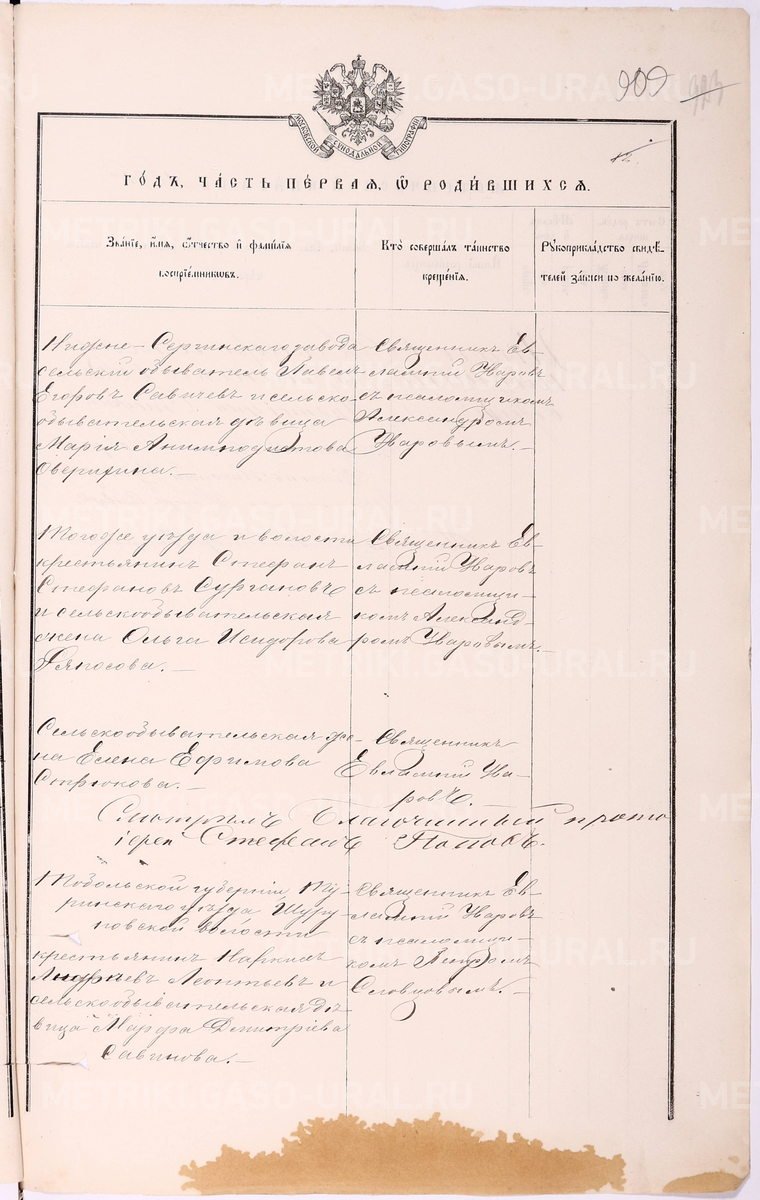 909
12.
МОСКОВСКОЙ СѴНОДАЛЬНОЙ ТИПОГРАФІИ
ГО́ДЪ, ЧА́СТЬ ПЕ́РВАЯ, Ѡ҆ РОДИ́ВШИХСѦ.
Зва́нїе, и҆́мѧ, ѻ҆́тчество и҆ фами́лїѧ
воспрїе́мникѡвъ.
Кто̀ соверша́лъ та́инство
креще́нїѧ.
Рꙋкоприкла́дство свидѣ́-
телей за́писи по жела́нїю.
Нижне-Сергинскаго завода
сельскій обыватель Павелъ
Егоровъ Савичевъ и сельско-
обывательская дѣвица
Марія Анимподистова
Оверинa.—
Священникъ Ев-
лампій Уваровъ
съ псаломщикомъ
Александромъ
Уваровымъ.—
Тогоже уѣзда и волости
крестьянинъ Стефанъ
Стефановъ Сургановъ
и сельскообывательская
жена Ольга Исидорова
Ряпосова.—
Священникъ Ев-
лампій Уваровъ
съ псаломщи-
комъ Александ-
ромъ Уваровымъ.—
Сельскообывательская же-
на Елена Ефимова
Стрюкова.—
Священникъ
Евлампій Ува-
ровъ.—
Смотрѣлъ Благочинный прото
іерей Стефанъ Поповъ.
Тобольской губерніи Ту-
ринскаго уѣзда Шуру-
повской волости
крестьянинъ Наркисъ
Андреевъ Леонтьевъ и
сельскообывательская дѣ-
вица Марфа Дмитріева
Савинова.—
Священникъ Ев-
лампій Уваровъ
съ псаломщи-
комъ Петромъ
Словцовымъ.—
METRIKI.GASO-URAL.RU